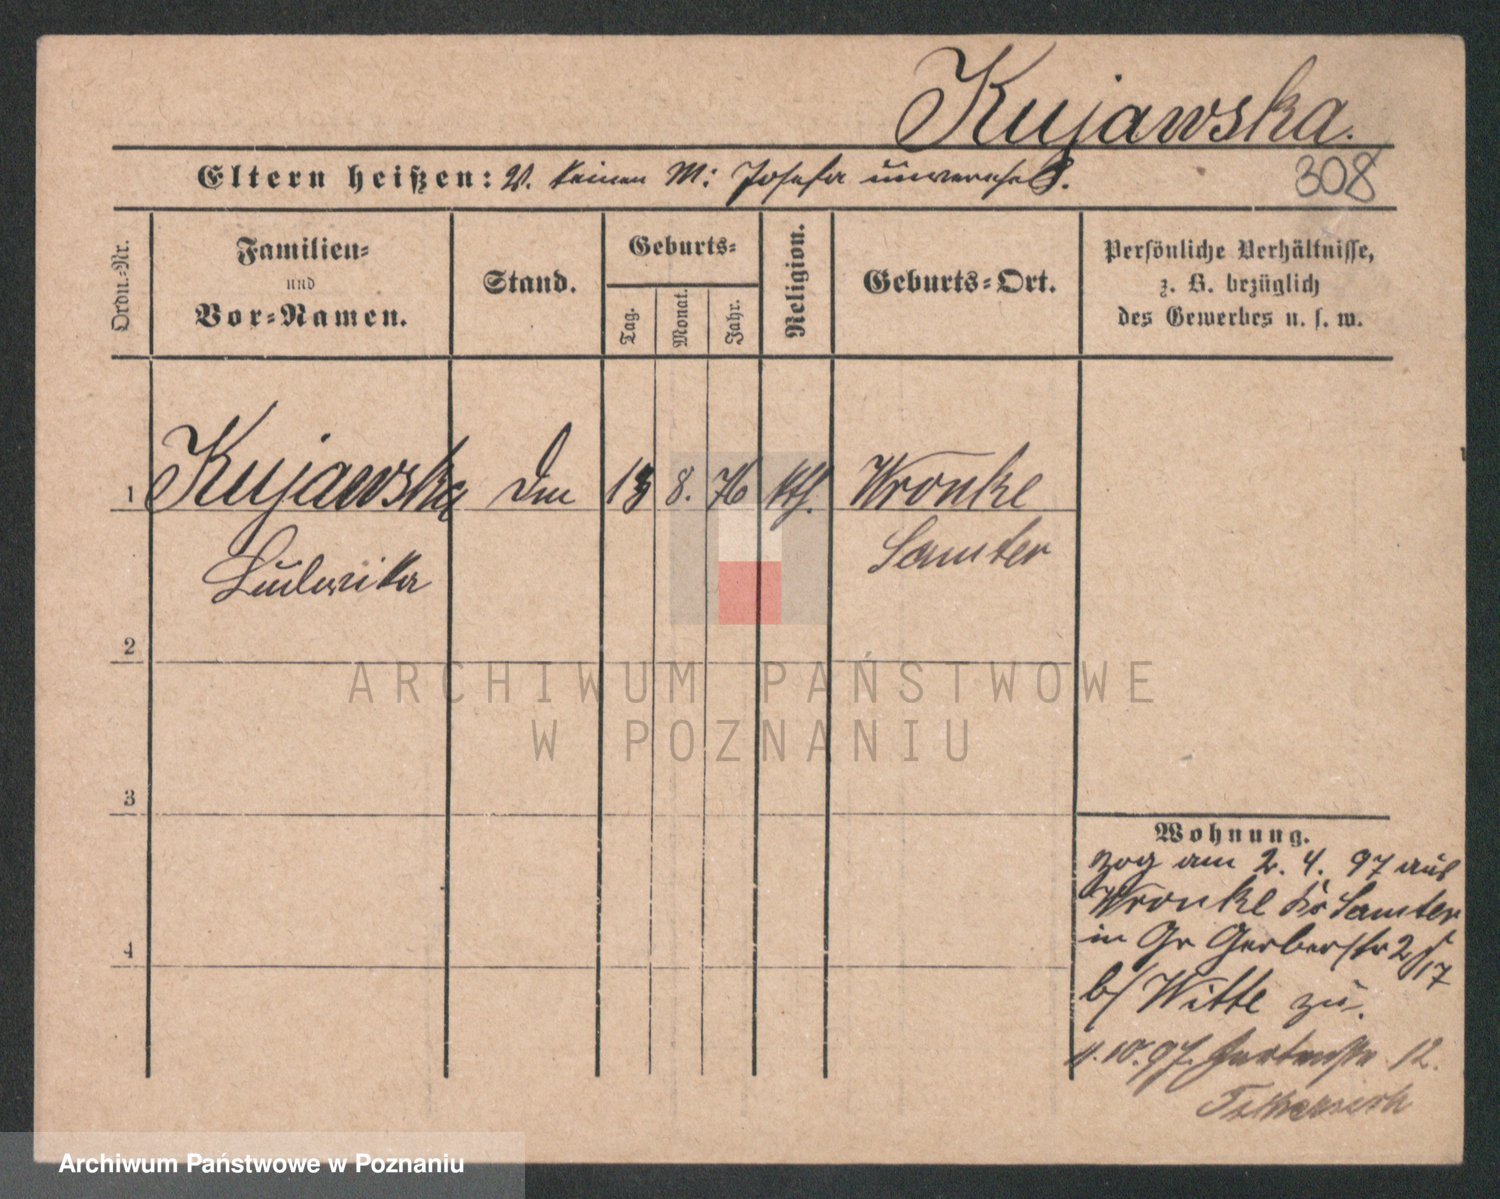 Kujawska.
Eltern heißen: V. keinen M: Josefa unverehel.
308
Ordn.-Nr.
Familien-
und
Vor-Namen.
Stand.
Geburts-
Tag.
Monat.
Jahr.
Religion.
Geburts-Ort.
Persönliche Verhältnisse,
z. B. bezüglich
des Gewerbes u. s. w.
1 Kujawska 8. 76 kth. Wronke
Ludwika Samter
2
3
4
ARCHIWUM PAŃSTWOWE
W POZNANIU
Wohnung.
zog am 2. 4. 97 aus
Wronke Kr Samter
in Gr Gerberstr 2/17
b/ Witte zu.
4.10.97. Gartenstr. 12.
Archiwum Państwowe w Poznaniu